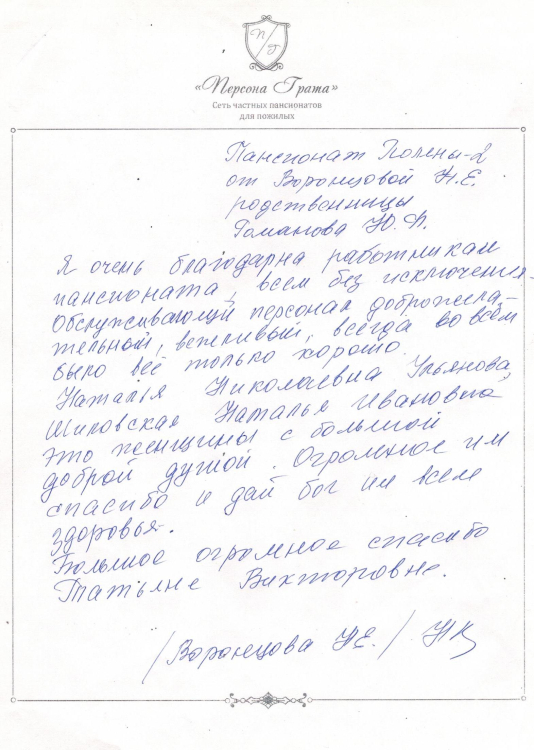 П/Г
«Персона Грата»
Сеть частных пансионатов
для пожилых
Пансионат
от Воронцовой Н.Е.
родственницы
Романова Ю.А.
Я очень благодарна работникам
пансионата, всем без исключения.
Обслуживающий персонал доброжела-
тельный, вежливый, всегда во всём
было всё только хорошо.
Наталья Николаевна Ульянова,
Шиловская Наталья Ивановна
это женщины с большой
доброй душой. Огромное им
спасибо и дай бог им всем
здоровья.
Большое огромное спасибо
Татьяне Викторовне.
/Воронцова НЕ./